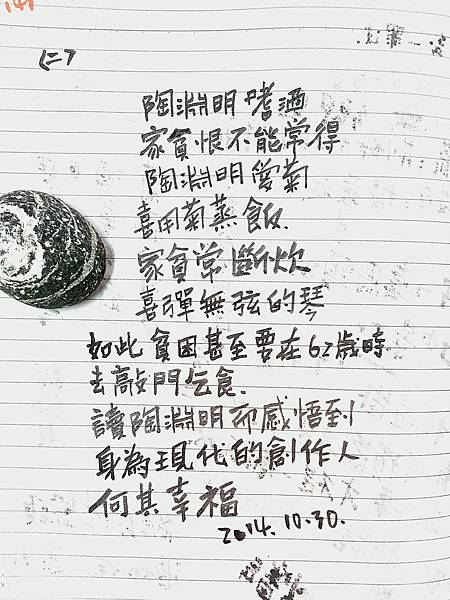 141
陶淵明嗜酒
家貧恨不能常得
陶淵明愛菊
喜用菊蒸飯.
家貧常斷炊
喜彈無弦的琴
如此貧困甚至要在62歲時
去敲門乞食.
讀陶淵明而感悟到
身為現代的創作人
何其幸福
2014.10.30.